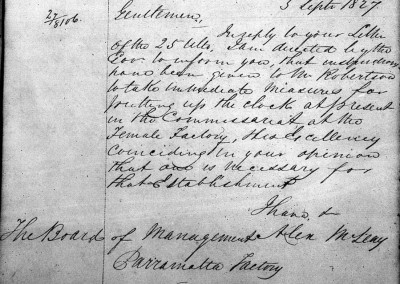 27/8106.
5 Septr 1827
Gentlemen,
In reply to your Letter
of the 25 Ulto, I am directed by the
Gov. to inform you, that instructions
have been given to Mr Robertson
to take immediate measures for
putting up the clock at present
in the Commissariat at the
Female Factory, His Excellency
coinciding in your opinion
that is necessary for
that Establishment
I have &
The Board of Management Alex McLeay
Parramatta Factory